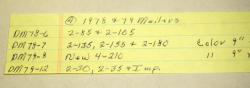 ④ 1978 & 79 Mailers
DM78-6 2-85 & 2-105
DM78-7 2-135, 2-155 & 2-180 Color 9"
DM78-8 New 4-210 " 9"
DM78-12 2-30, 2-35 & Imp.